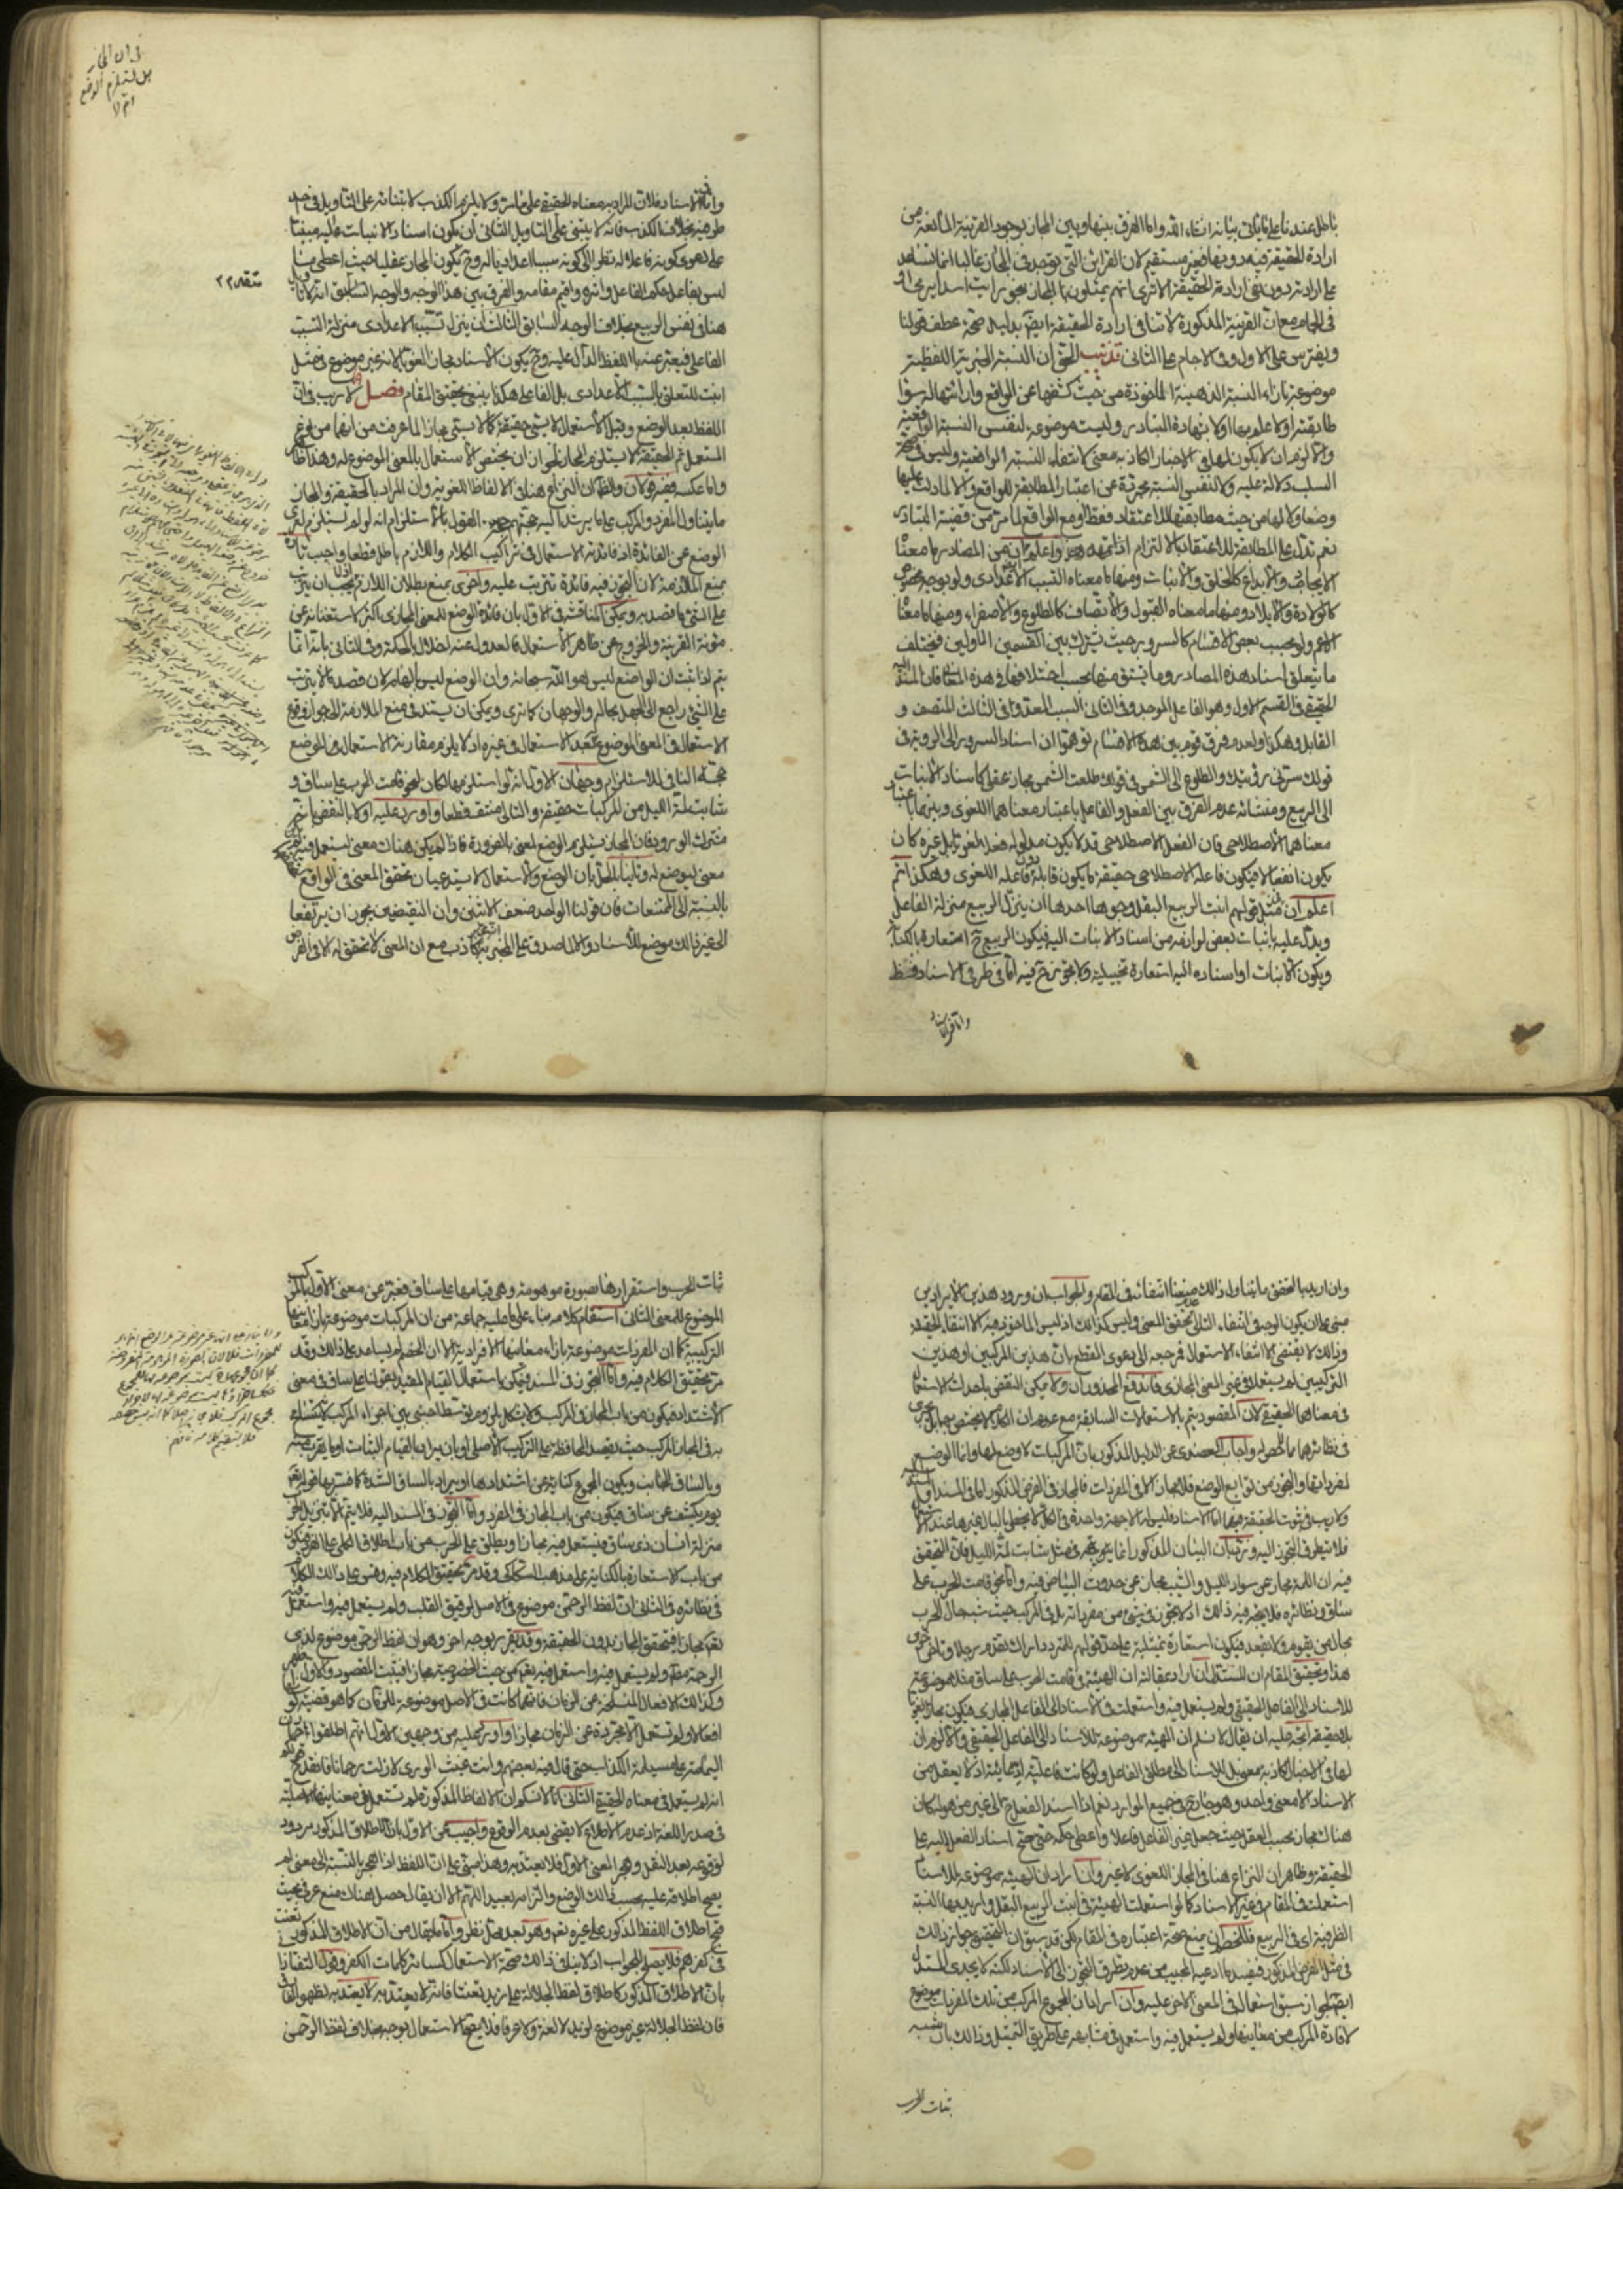 باطل عندنا على ما يأتي بيانه انشاء الله واما الفرق بينها وبين المجاز بوجود القرينة المانعة من
ارادة الحقيقة فيه دونها فغير مستقيم لان القرائن التي توجد في المجاز غالبا انما تساعد
على ارادته دون نفي ارادة الحقيقة الا ترى انهم يمثلون للمجاز بنحو رايت اسدا يرمى او
في الحمام مع ان القرينة المذكورة لا تنافي ارادة الحقيقة ايضا بدليل صحة عطف قولنا
ويفترس على الاول وفي الاجام على الثاني تذنيب الحق ان النسبة الخبرية اللفظية
موضوعة بازاء النسبة الذهنية الماخوذة من حيث كشفها عن الواقع وارائتها له سواء
طابقته اولا علم بها اولا بشهادة التبادر وليست موضوعة لنفس النسبة الواقعية
والا لزم ان لا يكون لها في الاخبار الكاذبة معنى لانتفاء النسبة الواقعية وليس في
السلب دلالة عليه ولا لنفس النسبة مجردة عن اعتبار المطابقة للواقع والا لما دلت عليها
وضعا ولا لها من حيث مطابقتها للاعتقاد فقط او مع الواقع لما مر من قضية التبادر
نعم تدل على المطابقة للاعتقاد بالالتزام اذا تمهد هذا واعلم ان من المصادر ما معناه
الايجاد والابداع كالخلق والانبات ومنها ما معناه التسبب الاعدادى ولو بوجه مخصوص
كالولادة والايلاد ومنها ما معناه القبول والاتصاف كالطلوع والاصفرار ومنها ما معناه
الاعم ولو بحسب بعض الاقسام كالسرور حيث يشترك بين القسمين الاولين فيختلف
ما يتعلق اسناد هذه المصادر وما يشتق منها بحسب اختلافها في هذه المعاني فان المسند اليه
الحقيقي في القسم الاول هو الفاعل الموجد وفي الثاني السبب المعد وفي الثالث المتصف و
القابل وهكذا ولعدم فرق قوم بين هذه الاقسام توهموا ان اسناد السرور الى الروية في
قولك سرتني رؤيتك والطلوع الى الشمس في قولك طلعت الشمس مجاز عقلي كاسناد الانبات
الى الربيع ومنشائه عدم الفرق بين الفعل والفاعل باعتبار معناهما اللغوى وبينهما باعتبار
معناهما الاصطلاحى فان الفعل الاصطلاحى قد لا يكون مدلوله فعلا لغويا بل غيره كان
يكون انفعالا فيكون فاعله الاصطلاحى حقيقة ما يكون قابله دون فاعله اللغوى وهكذا ثم
اعلم ان في مثل قولهم انبت الربيع البقل وجوها احدها ان ينزل الربيع منزلة الفاعل
ويدل عليه باثبات بعض لوازمه من اسناد الانبات اليه فيكون الربيع ح استعارة بالكناية
ويكون الانبات او اسناده اليه استعارة تخييلية ولا تجوز ح فيه اما في طرفي الاسناد فظ
واما في الاسناد
في ان المجاز
هل يستلزم الوضع
ام لا
واما في الاسناد فلان المراد به معناه الحقيقي على ما مر ولا يلزم الكذب لابتنائه على التاويل في احد
طرفيه بخلاف الكذب فانه لا يبتني على التاويل الثاني ان يكون اسناد الانبات اليه مبنيا
على دعوى كونه فاعلا له نظرا الى كونه سببا اعداديا له وح يكون المجاز عقليا حيث اعطى ما
ليس بفاعل حكم الفاعل وانزل واقيم مقامه والفرق بين هذا الوجه والوجه السابق انه لا تاويل
هنا في نفس الربيع بخلاف الوجه السابق الثالث ان ينزل تسبب الاعدادى منزلة التسبب
الفاعلى فيعبر عنه باللفظ الدال عليه وح يكون الاسناد مجازا لغويا لانه غير موضوع في مثل
انبت للتعلق بالسبب الاعدادى بل الفاعلى هكذا ينبغي تحقيق المقام فصل لا ريب في ان
اللفظ بعد الوضع وقبل الاستعمال لا يسمى حقيقة كما لا يسمى مجازا لما عرفت من انهما من نوع
المستعمل ثم الحقيقة لا يستلزم المجاز لجواز ان يختص الاستعمال بالمعنى الموضوع له وهذا ظاهر
واما عكسه ففيه قولان والظاهر ان النزاع هنا في الالفاظ اللغوية وان المراد بالحقيقة والمجاز
ما يتناول المفرد والمركب على ما يرشد اليه حجتهم حجة القول بالاستلزام انه لو لم يستلزم لعرى
الوضع عن الفائدة اذ فائدته الاستعمال في تراكيب الكلام واللازم باطل قطعا واجيب تارة
بمنع الملازمة لان التجوز فيه فائدة تترتب عليه واخرى بمنع بطلان اللازم اذ لا يجب ان يترتب
على الشئ ما قصد به ويمكن المناقشة في الاول بان فائدة الوضع للمعنى المجازى اكثر لاستغنائه عن
مؤنة القرينة والخروج عن ظاهر الاستعمال فالعدول عنه اخلال بالحكمة وفي الثاني بانه انما
يتم لو اثبت ان الواضع ليس هو الله سبحانه وان الوضع ليس بالهامه لان قصد ما لا يترتب
على الشئ راجع الى الجهل بحاله والوجهان كما ترى ويمكن ان يستند في منع الملازمة الى جواز وقوع
الاستعمال في المعنى الموضوع له بعد الاستعمال في غيره اذ لا يلزم مقارنة الاستعمال للوضع
حجة النافي للاستلزام وجهان الاول انه لو استلزمها لكان لنحو قامت الحرب على ساق و
شابت لمة الليل من المركبات حقيقة والتالي منتف قطعا واورد عليه اولا بالنقض بانه
مشترك الورود فان المجاز يستلزم الوضع لمعنى بالضرورة فاذا لم يكن هناك معنى يستعمل فيه
معنى ليوضع له وثانيا بالحل بان الوضع والاستعمال لا يستدعيان تحقق المعنى في الواقع
بالنسبة الى الممتنعات فان قولنا الواحد ضعف الاثنين وان النقيضين يجوز ان يرتفعا
الى غير ذلك موضع للاسناد والا لما صدق على المخبر به انه كاذب مع ان المعنى لا تحقق له الا في الفرض
وان اريد بالتحقق ما يتناول ذلك منعنا انتفائه في المقام والجواب ان ورود هذين الايرادين
مبنى على ان يكون الوجه في انتفاء التالي عدم تحقق المعنى وليس كذلك اذ ليس الماخوذ فيه الا انتفاء الحقيقة
وذلك لا يقتضي الا انتفاء الاستعمال فمرجعه الى دعوى القطع بان هذين المركبين او هذين
التركيبين لم يستعملا في غير المعنى المجازى فاندفع المحذوران ولا يمكن النقض باحداث الاستعمال
في معناهما الحقيقي لان المقصود يتم بالاستعمالات السابقة مع عدمه ان الكلام لا يختص بهما بل يجرى
في نظائرهما مما لا يحصى واجاب العضدى عن الدليل المذكور بان المركبات لا وضع لها وانما الوضع
لمفرداتها والتجوز من توابع الوضع فلا مجاز الا في المفردات فالمجاز في الفرض المذكور اما في المسند او المسند اليه
ولا ريب في ثبوت الحقيقة فيهما اما الاسناد فليس له الا جهة واحدة في الكل لا يخطر بالبال غيرها عند الاستعمال
فلا يتطرق التجوز اليه ويرد ان البيان المذكور انما يتم في مثل شابت لمة الليل فان التحقيق
فيه ان اللمة مجاز عن سواد الليل والشيب مجاز عن حدوث البياض فيه واما نحو قامت الحرب على
ساق ونظائره فلا يتم فيه ذلك اذ لا تجوز في شئ من مفرداته بل في المركب حيث شبه حال الحرب
بحال من يقوم ولا يقعد فيكون استعارة تمثيلية على حد قولهم للمتردد اراك تقدم رجلا وتؤخر اخرى
هذا وتحقيق المقام ان المستدل ان اراد بمقالته ان الهيئة في قامت الحرب على ساق مثلا موضوعة
للاسناد الى الفاعل الحقيقي ولم يستعمل فيه واستعملت في الاسناد الى الفاعل المجازى فيكون مجازا لغويا
بلا حقيقة اتجه عليه ان يقال لا نسلم ان الهيئة موضوعة للاسناد الى الفاعل الحقيقي والا لزم ان
لها في الاخبار الكاذبة معنى بل للاسناد الى مطلق الفاعل ولو كانت فاعليته ادعائية اذ لا يعقل من
الاسناد الا معنى واحد وهو صادق في جميع الموارد نعم اذا اسند الفعل ح الى غير من هو له كان
هناك مجاز بحسب العقل حيث جعل غير الفاعل فاعلا واعطى حكمه حتى صح اسناد الفعل اليه على
الحقيقة وظاهر ان النزاع هنا في المجاز اللغوى لا غير وان اراد ان الهيئة موضوعة للاسناد
استعملت في المقام في غير الاسناد كما لو استعملت الهيئة في انبت الربيع البقل واريد بها النسبة
الظرفية اى في الربيع فللخصم ان يمنع صحة اعتباره في المقام لكن قد سبق ان التحقيق جواز ذلك
في مثل الفرض المذكور فيفسد ما ادعيه المجيب من عدم تطرق التجوز الى الاسناد لكنه لا يجدى المستدل
ايضا لجواز سبق استعماله في المعنى الاخر عليه وان اراد ان المجموع المركب من تلك المفردات موضوع
لافادة المركب من معانيها ولم يستعمل فيه واستعمل في مشابهه على طريق التمثيل وذلك بان شبه
ثبات الحرب
ثبات الحرب واستقرارها بصورة موهومة وهي قيامها على ساق فعبر عن معنى الاول بالمركب
الموضوع للمعنى الثاني استقام كلامه بناء على ما عليه جماعة من ان المركبات موضوعة بازاء معانيها
التركيبية كما ان المفردات موضوعة بازاء معانيها الافرادية الا ان الخصم لم يساعد على ذلك وقد
مر تحقيق الكلام فيه واما التجوز في المسند فيمكن باستعمال القيام المقيد بقولنا على ساق في معنى
الاشتداد فيكون من باب المجاز في المركب ولا يشكل بلزوم توسط اجنبي بين اجزاء المركب لانه يتسامح
به في المجاز المركب حيث يقصد المحافظة على التركيب الاصلي او بان يراد بالقيام الثبات او ما يقرب منه
وبالساق الجانب ويكون المجموع كناية عن اشتدادها او يراد بالساق الشدة كما فسر بها قوله تعالى
يوم يكشف عن ساق فيكون من باب المجاز في المفرد واما التجوز في المسند اليه فلا يتم الا بتنزيل الحرب
منزلة انسان ذى ساق فيستعمل فيه مجازا ويطلق على الحرب من باب اطلاق الكلي على الفرد فيكون
من باب الاستعارة بالكناية على مذهب السكاكى وقد مر تحقيق الكلام فيه وقس على ذلك الكلام
في نظائره الثاني ان لفظ الرحمن موضوع في الاصل لرقيق القلب ولم يستعمل فيه واستعمل
فيه تعالى مجازا فيتحقق المجاز بدون الحقيقة وقد يقرر بوجه اخر وهو ان لفظ الرحمن موضوع لذى
الرحمة مطلقا ولم يستعمل فيه واستعمل فيه تعالى من حيث الخصوصية مجازا فيثبت المقصود والاول اظهر
وكذلك الافعال المنسلخة عن الزمان فانها كانت في الاصل موضوعة للزمان كما هو قضية كونها
افعالا ولم تستعمل الا مجردة عن الزمان مجازا واورد عليه من وجهين الاول انهم اطلقوا رحمن
اليمامة على مسيلمة الكذاب حتى قال فيه بعضهم وانت غيث الورى لازلت رحمانا فاندفع قوله
انه لم يستعمل في معناه الحقيقي الثاني انا لا نسلم ان الالفاظ المذكورة لم تستعمل في معانيها الاصلية
في صدر اللغة اذ عدم الاطلاع لا يقضى بعدم الوقوع واجيب عن الاول بان الاطلاق المذكور مردود
لوقوعه بعد النقل وهجر المعنى الاول فلا يعتد به وهذا مبنى على ان اللفظ اذا هجر بالنسبة الى معنى لم
يصح اطلاقه عليه بحسب ذلك الوضع والتزامه بعيد اللهم الا ان يقال حصل هناك منع عرفي بحيث
قبح اطلاق اللفظ المذكور على غيره تعالى وهو بعد محل نظر واما ما يقال من ان الاطلاق المذكور تعنت
في كفرهم فلا يصلح للجواب اذ لا ينافي ذلك صحة الاستعمال كسائر كلمات الكفر وقول التفتازاني
بان الاطلاق المذكور كاطلاق لفظ الجلالة على زيد تعنتا فانه لا يعتد به لا يعتد به لظهور الفارق
فان لفظ الجلالة غير موضوع لزيد لا لغة ولا عرفا فلا يصح الاستعمال بوجه بخلاف لفظ الرحمن